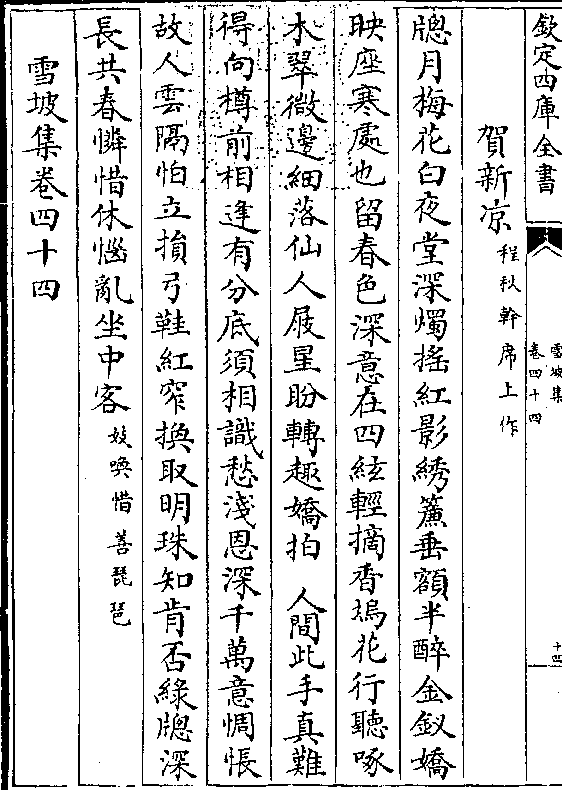 欽定四庫全書
雪坡集
卷四十四
十四
賀新凉程秋幹席上作
牕月梅花白夜堂深燭搖紅影綉簾垂額半醉金釵嬌
映座寒處也留春色深意在四絃輕摘香塢花行聽啄
木翠微邊細落仙人屐星盼轉趣嬌拍　人間此手真難
得向樽前相逢有分底須相識愁淺恩深千萬意惆悵
故人雲隔怕立損弓鞋紅窄換取明珠知肯否綠牕深
長共春憐惜休惱亂坐中客妓喚惜善琵琶
雪坡集卷四十四